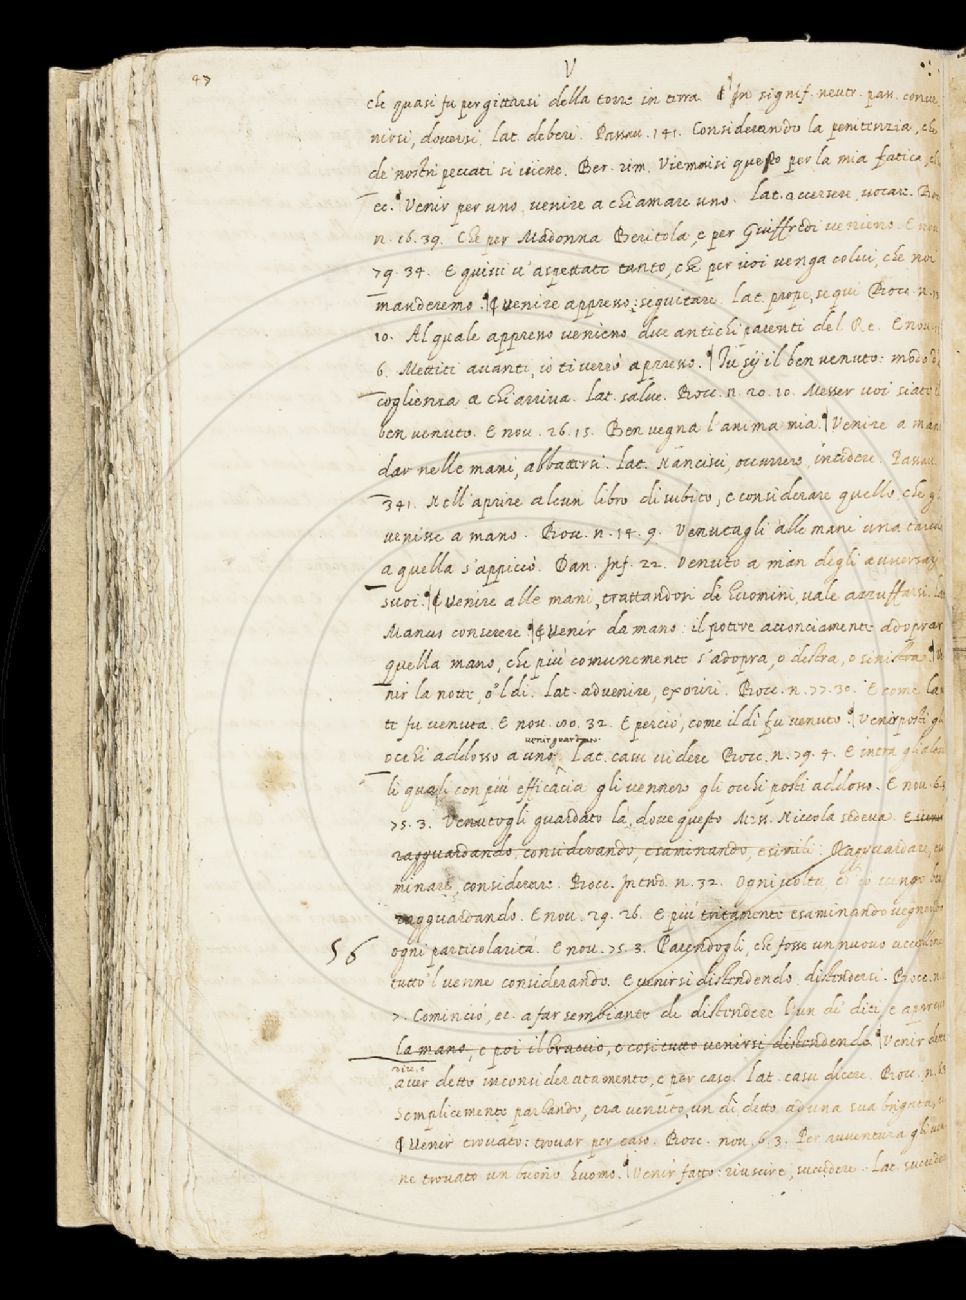 V
che quasi fu per gittarsi della torre in terra ¶ In signif. neutr. pass. conue
nirsi, doversi. Lat. deberi. Passau. 141. Considerando la penitenzia, che
de' nostri peccati si viene. Ber. rim. Viemmisi questo per la mia fatica,
ec. Venir per uno, venire a chiamare uno. Lat. accersere, vocare.
n. 16. 39. Che per Madonna Beritola, e per Giuffredi venieno. E nou
79. 34. E quivi v'aspettate tanto, che per voi venga colui, che noi
manderemo. ¶ Venire appresso: seguitare. Lat. prope, sequi Bocc. n.
10. Al quale appresso venieno due antichi parenti del Re. E nou
6. Mettiti avanti, io ti verrò appresso. Tu sij il ben venuto: modo d'
coglienza a chi arriva. Lat. salve. Bocc. n. 20. 20. Messer voi siate il
ben venuto. E nou. 26. 15. Ben vegna l'anima mia. Venire a man
dar nelle mani, abbattersi. Lat. Nancisci, occurrere, incidere. Passau.
341. Nell'aprire alcun libro di subito, e considerare quello, che gli
venisse a mano. Bocc. n. 14. 9. Venutagli alle mani una tavola
a quella s'appiccò. Dan. Inf. 22. Venuto a man degli avversari
suoi. ¶ Venire alle mani, trattandosi di huomini, vale azzuffarsi. Lat
Manus conserere ¶ Venir da mano: il potere acconciamente adoprar
quella mano, che più comunemente s'adopra, o destra, o sinistra. Ve
nir la notte, o'l dì. Lat. advenire, exoriri. Bocc. n. 77. 30. E come la
te fu venuta. E nou. 100. 32. E perciò, come il dì fu venuto. Venir posti gli
venir guardato.
occhi addosso a uno, Lat. casu videre Bocc. n. 79. 4. E intra gli altri
li quali con più efficacia gli vennero gli occhi posti addosso. E nou. 64
75. 3. Venutogli guardato là, dove questo Mess. Niccola sedeva. E
ragguardando, considerando, esaminando, e simili: Ragguardare, esa
minare, considerare. Bocc. Introd. n. 32. Ogni volta
ragguardando. E nou. 29. 26. E più tritamente esaminando vegnendo
56 ogni particolarità. E nou. 75. 3. Parendogli, che fosse un nuovo uccellone
tutto'l venne considerando. E venirsi distendendo. distendersi. Bocc. n.
7. Cominciò, ec. a far sembiante di distendere l'un de' diti, e appresso
la mano, e poi il braccio, e così tutto venirsi distendendo. Venir detto
aver detto inconsideratamente, e per caso. Lat. casu dicere. Bocc. n. 63
Semplicemente parlando, era venuto un dì detto ad una sua brigata,
¶ Venir trovato: trovar per caso. Bocc. nou. 6. 3. Per avventura gli ven
ne trovato un buono huomo. Venir fatto: riuscire, succedere. Lat. succedere